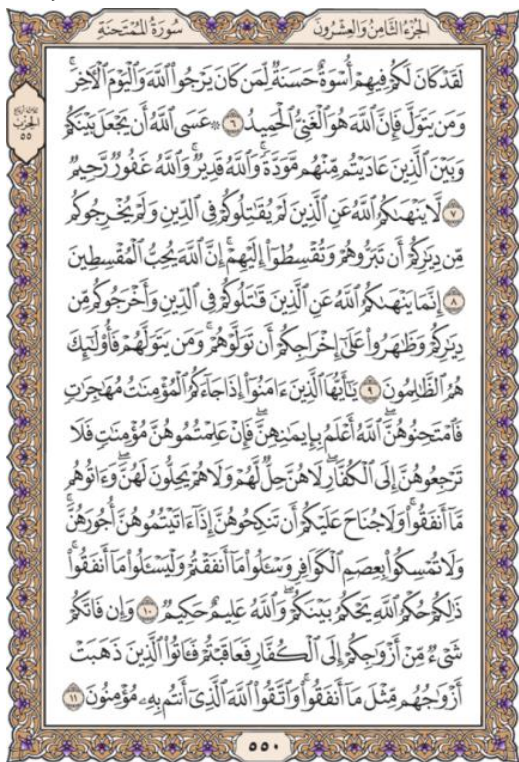 الجُزْءُ الثَّامِنُ وَالعِشْرُونَ
سُورَةُ المُمْتَحَنَةِ
الحِزْبِ
٥٥
لَقَدْ كَانَ لَكُمْ فِيهِمْ أُسْوَةٌ حَسَنَةٌ لِّمَن كَانَ يَرْجُوا۟ ٱللَّهَ وَٱلْيَوْمَ ٱلْـَٔاخِرَ ۚ
وَمَن يَتَوَلَّ فَإِنَّ ٱللَّهَ هُوَ ٱلْغَنِىُّ ٱلْحَمِيدُ ٦ ۞ عَسَى ٱللَّهُ أَن يَجْعَلَ بَيْنَكُمْ
وَبَيْنَ ٱلَّذِينَ عَادَيْتُم مِّنْهُم مَّوَدَّةً ۚ وَٱللَّهُ قَدِيرٌ ۚ وَٱللَّهُ غَفُورٌ رَّحِيمٌ
٧ لَّا يَنْهَىٰكُمُ ٱللَّهُ عَنِ ٱلَّذِينَ لَمْ يُقَـٰتِلُوكُمْ فِى ٱلدِّينِ وَلَمْ يُخْرِجُوكُم
مِّن دِيَـٰرِكُمْ أَن تَبَرُّوهُمْ وَتُقْسِطُوٓا۟ إِلَيْهِمْ ۚ إِنَّ ٱللَّهَ يُحِبُّ ٱلْمُقْسِطِينَ
٨ إِنَّمَا يَنْهَىٰكُمُ ٱللَّهُ عَنِ ٱلَّذِينَ قَـٰتَلُوكُمْ فِى ٱلدِّينِ وَأَخْرَجُوكُم مِّن
دِيَـٰرِكُمْ وَظَـٰهَرُوا۟ عَلَىٰٓ إِخْرَاجِكُمْ أَن تَوَلَّوْهُمْ ۚ وَمَن يَتَوَلَّهُمْ فَأُو۟لَـٰٓئِكَ
هُمُ ٱلظَّـٰلِمُونَ ٩ يَـٰٓأَيُّهَا ٱلَّذِينَ ءَامَنُوٓا۟ إِذَا جَآءَكُمُ ٱلْمُؤْمِنَـٰتُ مُهَـٰجِرَٰتٍ
فَٱمْتَحِنُوهُنَّ ۖ ٱللَّهُ أَعْلَمُ بِإِيمَـٰنِهِنَّ ۖ فَإِنْ عَلِمْتُمُوهُنَّ مُؤْمِنَـٰتٍ فَلَا
تَرْجِعُوهُنَّ إِلَى ٱلْكُفَّارِ ۖ لَا هُنَّ حِلٌّ لَّهُمْ وَلَا هُمْ يَحِلُّونَ لَهُنَّ ۖ وَءَاتُوهُم
مَّآ أَنفَقُوا۟ ۚ وَلَا جُنَاحَ عَلَيْكُمْ أَن تَنكِحُوهُنَّ إِذَآ ءَاتَيْتُمُوهُنَّ أُجُورَهُنَّ ۚ
وَلَا تُمْسِكُوا۟ بِعِصَمِ ٱلْكَوَافِرِ وَسْـَٔلُوا۟ مَآ أَنفَقْتُمْ وَلْيَسْـَٔلُوا۟ مَآ أَنفَقُوا۟ ۚ
ذَٰلِكُمْ حُكْمُ ٱللَّهِ ۖ يَحْكُمُ بَيْنَكُمْ ۚ وَٱللَّهُ عَلِيمٌ حَكِيمٌ ١٠ وَإِن فَاتَكُمْ
شَىْءٌ مِّنْ أَزْوَٰجِكُمْ إِلَى ٱلْكُفَّارِ فَعَاقَبْتُمْ فَـَٔاتُوا۟ ٱلَّذِينَ ذَهَبَتْ
أَزْوَٰجُهُم مِّثْلَ مَآ أَنفَقُوا۟ ۚ وَٱتَّقُوا۟ ٱللَّهَ ٱلَّذِىٓ أَنتُم بِهِۦ مُؤْمِنُونَ ١١
٥٥٠